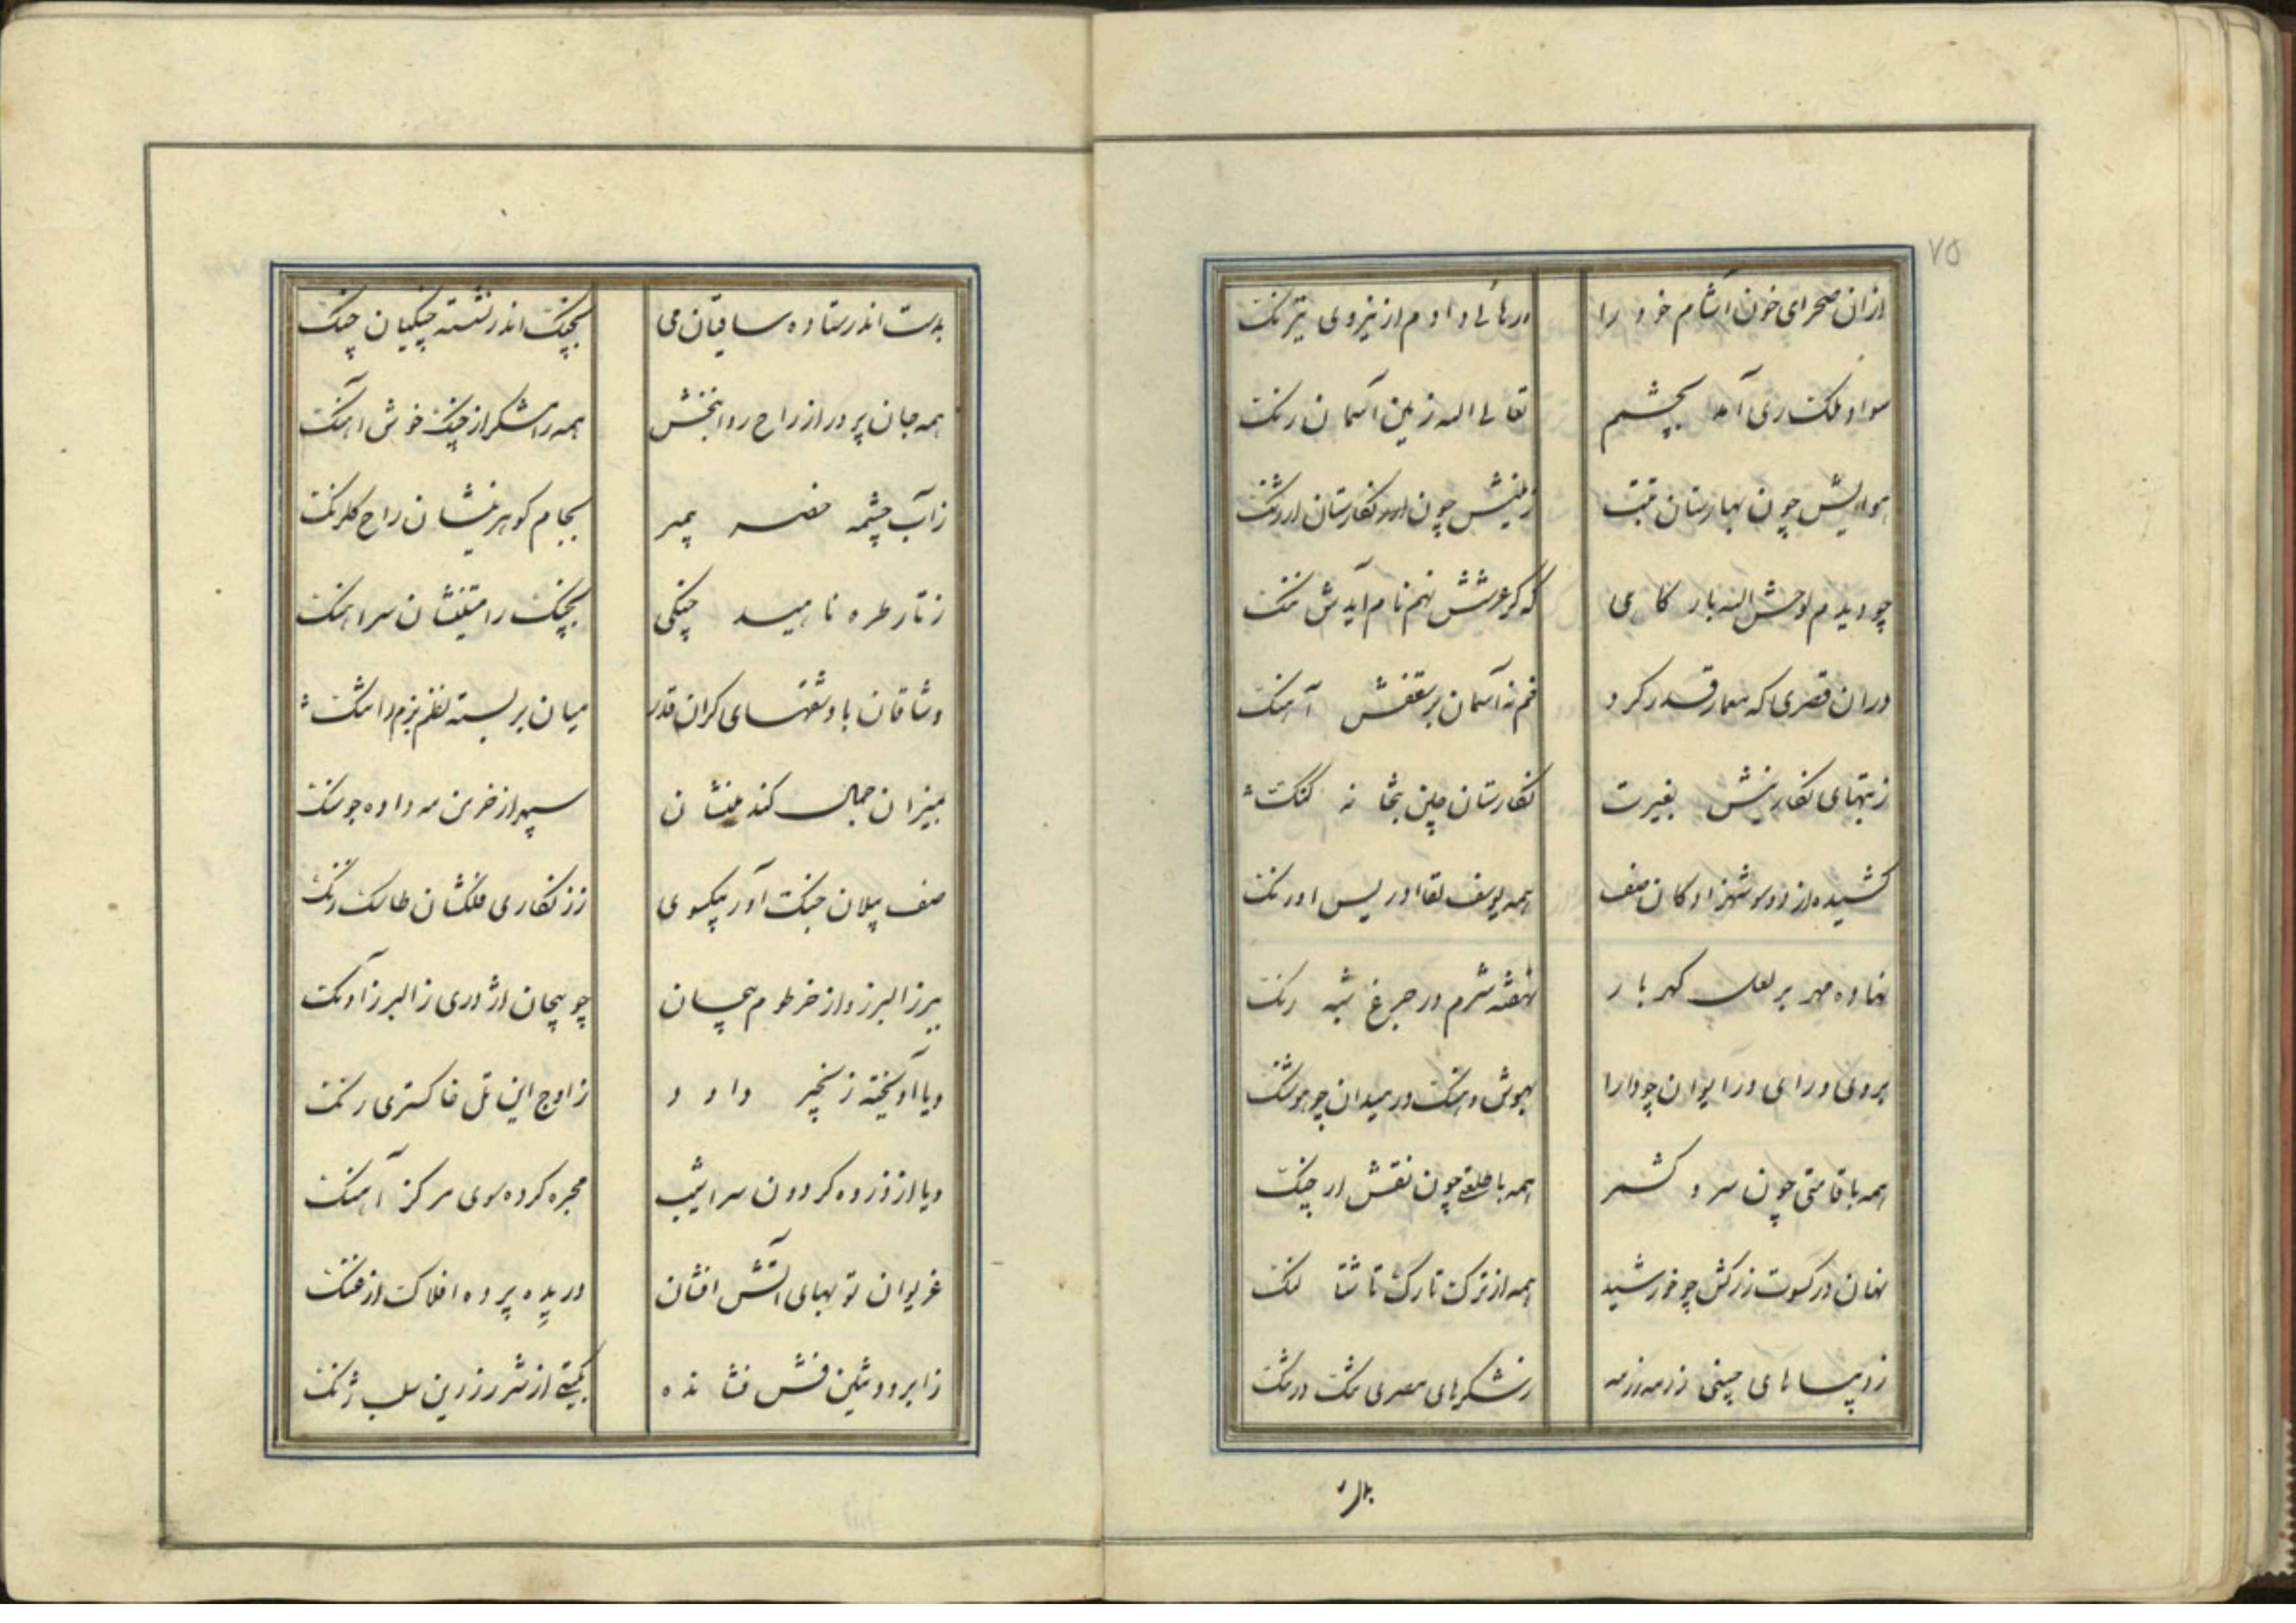 ۷۵
ازان صحرای خون آشام خود را رهائی دادم از نیروی تیرنک
سواد ملکت ری آمد بچشم تعالی اله زمین آسمان رنک
هوایش چون بهارستان تبت زمینش چون نکارستان ارژنک
چو دیدم لوحش الله بارکاهی که کر عرشش نهم نام آیدش ننک
دران قصری که معمار قدر کرد خم نه آسمان بر سقفش آهنک
ز بتهای نکارینش بغیرت نکارستان چین بتخانه کنک
کشیده از دو سو شهزادکان صف همه یوسف لقا ادریس اورنک
نهاده مهر بر لعل کهربار نهفته شرم در جزع شبه رنک
بروی و رای در ایوان چو دارا بهوش و هنک در میدان چو هوشنک
همه با قامتی چون سرو کشمر همه با طلعتی چون نقش ارچنک
نهان در کسوت زرکش چو خورشید همه از ترک تارک تا شتالنک
ز دیباهای چینی رزمه رزمه ز شکرهای مصری تنک در تنک
بدست
بدست اندر ستاده ساقیان می بچنک اندر نشسته چنکیان چنک
همه جان پرور از راح روانبخش همه رامشکر از چنک خوش اهنک
ز آب چشمه خضر پیمبر بجام کوهرینشان راح کلرنک
ز تار طره ناهید چنکی بچنک رامتینشان سراهنک
وشاقان با وشقهای کران قدر میان بر بسته نظم بزم را تنک
بمیزان جمال کندمنشان سپهر از خرمن مه داده جوسنک
صف پیلان جنک آور بیکسوی ز زنکاری فلکشان طاسک و زنک
ببرز البرز و از خرطوم پیچان چو پیچان اژدری ز البرز آونک
ویا آویخته زنجیر داود ز اوج این تل خاکستری رنک
ویا از ذروه کردون سراشیب مجره کرده سوی مرکز آهنک
غریوان توپهای آتش افشان دریده پرده افلاک از غنک
ز ابر دود مشکین فش فشانده بکیتی از شرر زرین سلب ژنک